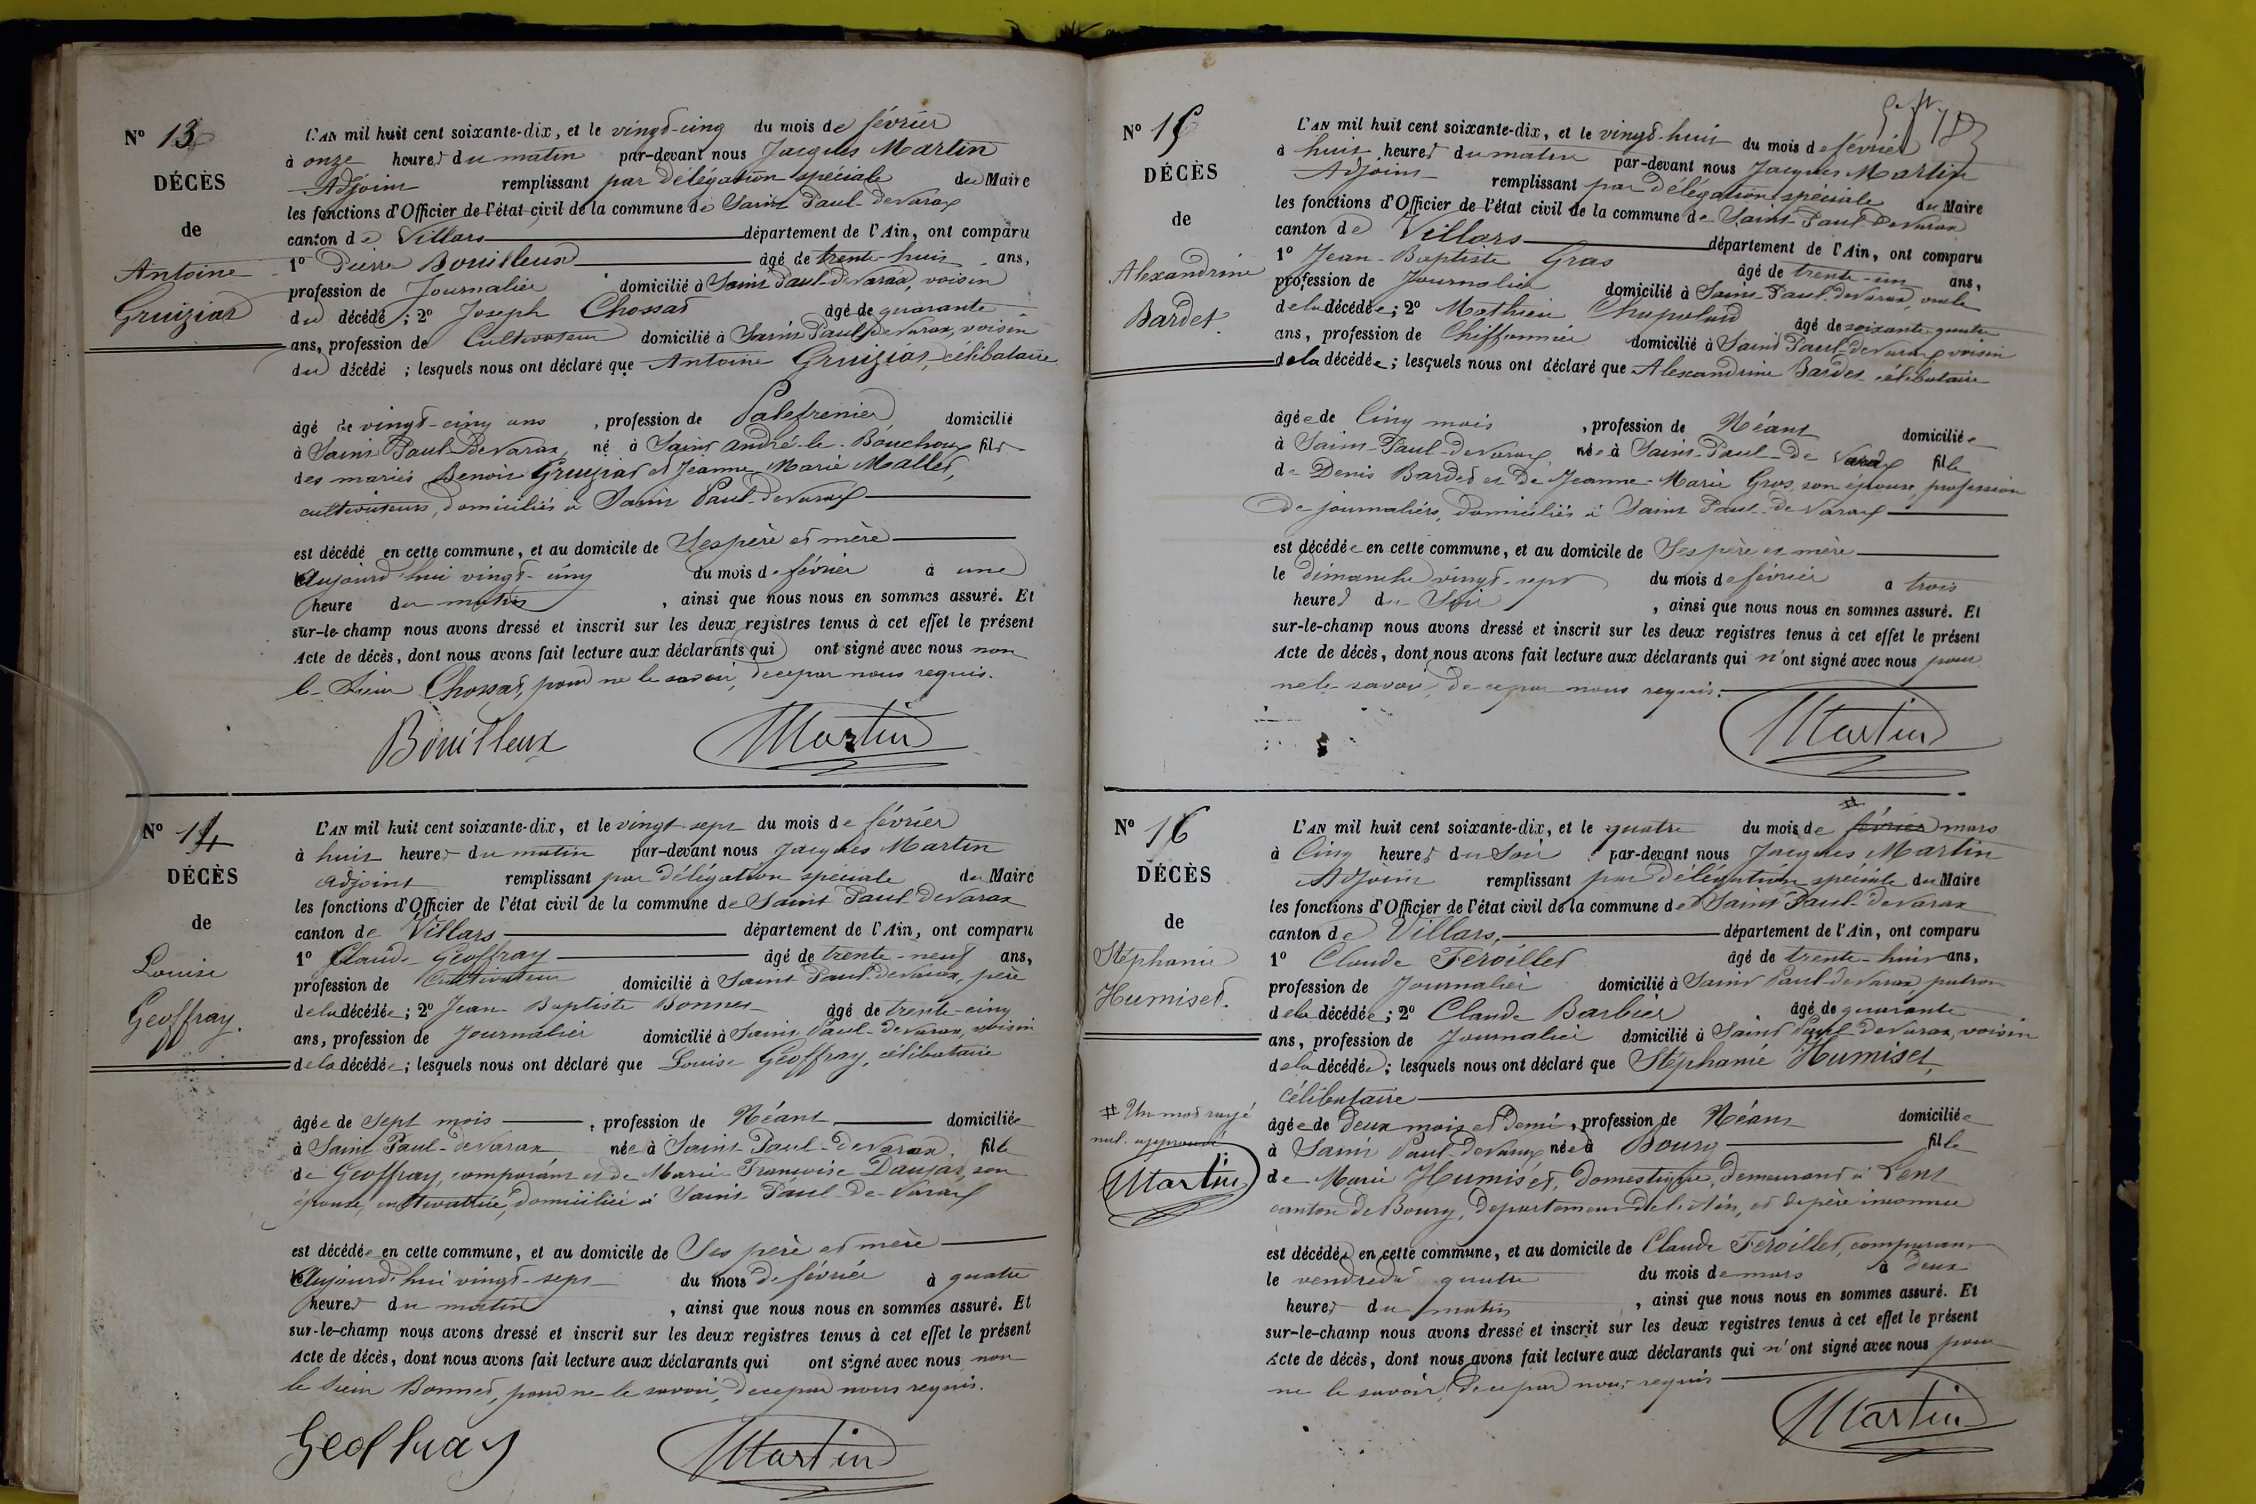 N° 13
DÉCÈS
de
Antoine
Gruiziat
L'AN mil huit cent soixante-dix, et le vingt-cinq du mois de février
à onze heures du matin par-devant nous Jacques Martin
Adjoint remplissant par délégation spéciale du Maire
les fonctions d'Officier de l'état civil de la commune de Saint Paul-deVarax
canton de Villars département de l'Ain, ont comparu
1° Pierre Bouilleux âgé de trente-huit ans,
profession de Journalier domicilié à Saint Paul-deVarax, voisin
du décédé ; 2° Joseph Chossat âgé de quarante
ans, profession de Cultivateur domicilié à Saint Paul deVarax, voisin
du décédé ; lesquels nous ont déclaré que Antoine Gruiziat, célibataire
âgé de vingt-cinq ans , profession de Palefrenier domicilié
à Saint Paul-DeVarax né à Saint André-le-Bouchoux fils
des mariés Benoit Gruiziat et Jeanne-Marie Mallet,
cultivateurs, domiciliés à Saint Paul-deVarax
est décédé en cette commune, et au domicile de Ses père et mère
Aujourd'hui vingt-cinq du mois de février à une
heure du matin , ainsi que nous nous en sommes assuré. Et
sur-le-champ nous avons dressé et inscrit sur les deux registres tenus à cet effet le présent
Acte de décès, dont nous avons fait lecture aux déclarants qui ont signé avec nous non
le Sieur Chossat, pour ne le savoir, de ce par nous requis.
Bouilleux Martin
N° 14
DÉCÈS
de
Louise
Geoffray.
L'AN mil huit cent soixante-dix, et le vingt-sept du mois de février
à huit heures du matin par-devant nous Jacques Martin
adjoint remplissant par délégation spéciale du Maire
les fonctions d'Officier de l'état civil de la commune de Saint Paul deVarax
canton de Villars département de l'Ain, ont comparu
1° Claude Geoffray âgé de trente-neuf ans,
profession de Cultivateur domicilié à Saint Paul-deVarax, père
de la décédée ; 2° Jean Baptiste Bonnet âgé de trente-cinq
ans, profession de Journalier domicilié à Saint Paul-deVarax, voisin
de la décédée ; lesquels nous ont déclaré que Louise Geoffray, célibataire
âgée de Sept mois , profession de Néant domiciliée
à Saint Paul-deVarax née à Saint-Paul-deVarax, fille
de Geoffray, comparant et de Marie-Françoise Daujat, son
épouse, cultivatrice, domiciliée à Saint Paul-de-Varax
est décédée en cette commune, et au domicile de Ses père et mère
Aujourd'hui vingt-sept du mois de février à quatre
heures du matin , ainsi que nous nous en sommes assuré. Et
sur-le-champ nous avons dressé et inscrit sur les deux registres tenus à cet effet le présent
Acte de décès, dont nous avons fait lecture aux déclarants qui ont signé avec nous non
le Sieur Bonnet, pour ne le savoir, de ce par nous requis.
Geoffray Martin
N° 15
DÉCÈS
de
Alexandrine
Bardet.
L'AN mil huit cent soixante-dix, et le vingt-huit du mois de février
à huit heures du matin par-devant nous Jacques Martin
Adjoint remplissant par délégation spéciale du Maire
les fonctions d'Officier de l'état civil de la commune de Saint-Paul-DeVarax
canton de Villars département de l'Ain, ont comparu
1° Jean-Baptiste Gras âgé de trente-un ans,
profession de Journalier domicilié à Saint-Paul-deVarax, oncle
de la décédée ; 2° Mathieu âgé de soixante-quatre
ans, profession de Chiffonnier domicilié à Saint Paul-deVarax voisin
de la décédée ; lesquels nous ont déclaré que Alexandrine Bardet célibataire
âgée de Cinq mois , profession de Néant domiciliée
à Saint-Paul-deVarax née à Saint-Paul-De Varax fille
de Denis Bardet et de Jeanne-Marie Gros, son épouse, profession
de journaliers, domiciliés à Saint Paul-de-Varax
est décédée en cette commune, et au domicile de Ses père et mère
le dimanche vingt-sept du mois de février à trois
heures du Soir , ainsi que nous nous en sommes assuré. Et
sur-le-champ nous avons dressé et inscrit sur les deux registres tenus à cet effet le présent
Acte de décès, dont nous avons fait lecture aux déclarants qui n'ont signé avec nous pour
ne le savoir, de ce par nous requis.
Martin
N° 16
DÉCÈS
de
Stéphanie
Humiset.
L'AN mil huit cent soixante-dix, et le quatre du mois de # février mars
à Cinq heures du Soir par-devant nous Jacques Martin
Adjoint remplissant par délégation spéciale du Maire
les fonctions d'Officier de l'état civil de la commune de Saint Paul-deVarax
canton de Villars, département de l'Ain, ont comparu
1° Claude Feroillet âgé de trente-huit ans,
profession de Journalier domicilié à Saint Paul-deVarax, patron
de la décédée ; 2° Claude Barbier âgé de quarante
ans, profession de Journalier domicilié à Saint Paul-deVarax, voisin
de la décédée ; lesquels nous ont déclaré que Stéphanie Humiset,
célibataire
âgée de Deux mois et Demi, profession de Néant domiciliée
à Saint Paul-deVarax née à Bourg fille
de Marie Humiset, Domestique, Demeurant à Lent
canton de Bourg, département de l'Ain, et de père inconnu
est décédée en cette commune, et au domicile de Claude Feroillet, comparant
le vendredi quatre du mois de mars à Deux
heures du matin , ainsi que nous nous en sommes assuré. Et
sur-le-champ nous avons dressé et inscrit sur les deux registres tenus à cet effet le présent
Acte de décès, dont nous avons fait lecture aux déclarants qui n'ont signé avec nous pour
ne le savoir, de ce par nous requis
Martin
# Un mot rayé
nul. approuvé
Martin